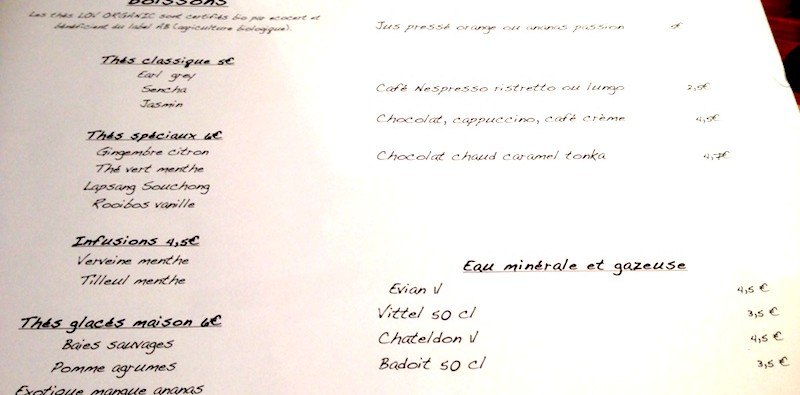 Boissons
Les thés LOV ORGANIC sont certifiés bio par ecocert et
bénéficient du label AB (agriculture biologique).
Thés classique 5€
Earl grey
Sencha
Jasmin
Thés spéciaux 6€
Gingembre citron
Thé vert menthe
Lapsang Souchong
Rooibos vanille
Infusions 4,5€
Verveine menthe
Tilleul menthe
Thés glacés maison 6€
Baies sauvages
Pomme agrumes
Exotique mangue ananas
Jus pressé orange ou ananas passion
Café Nespresso ristretto ou lungo 2,5€
Chocolat, cappuccino, café crème 4,5€
Chocolat chaud caramel tonka 4,7€
Eau minérale et gazeuse
Evian V 4,5 €
Vittel 50 cl 3,5 €
Chateldon V 4,5 €
Badoit 50 cl 3,5 €